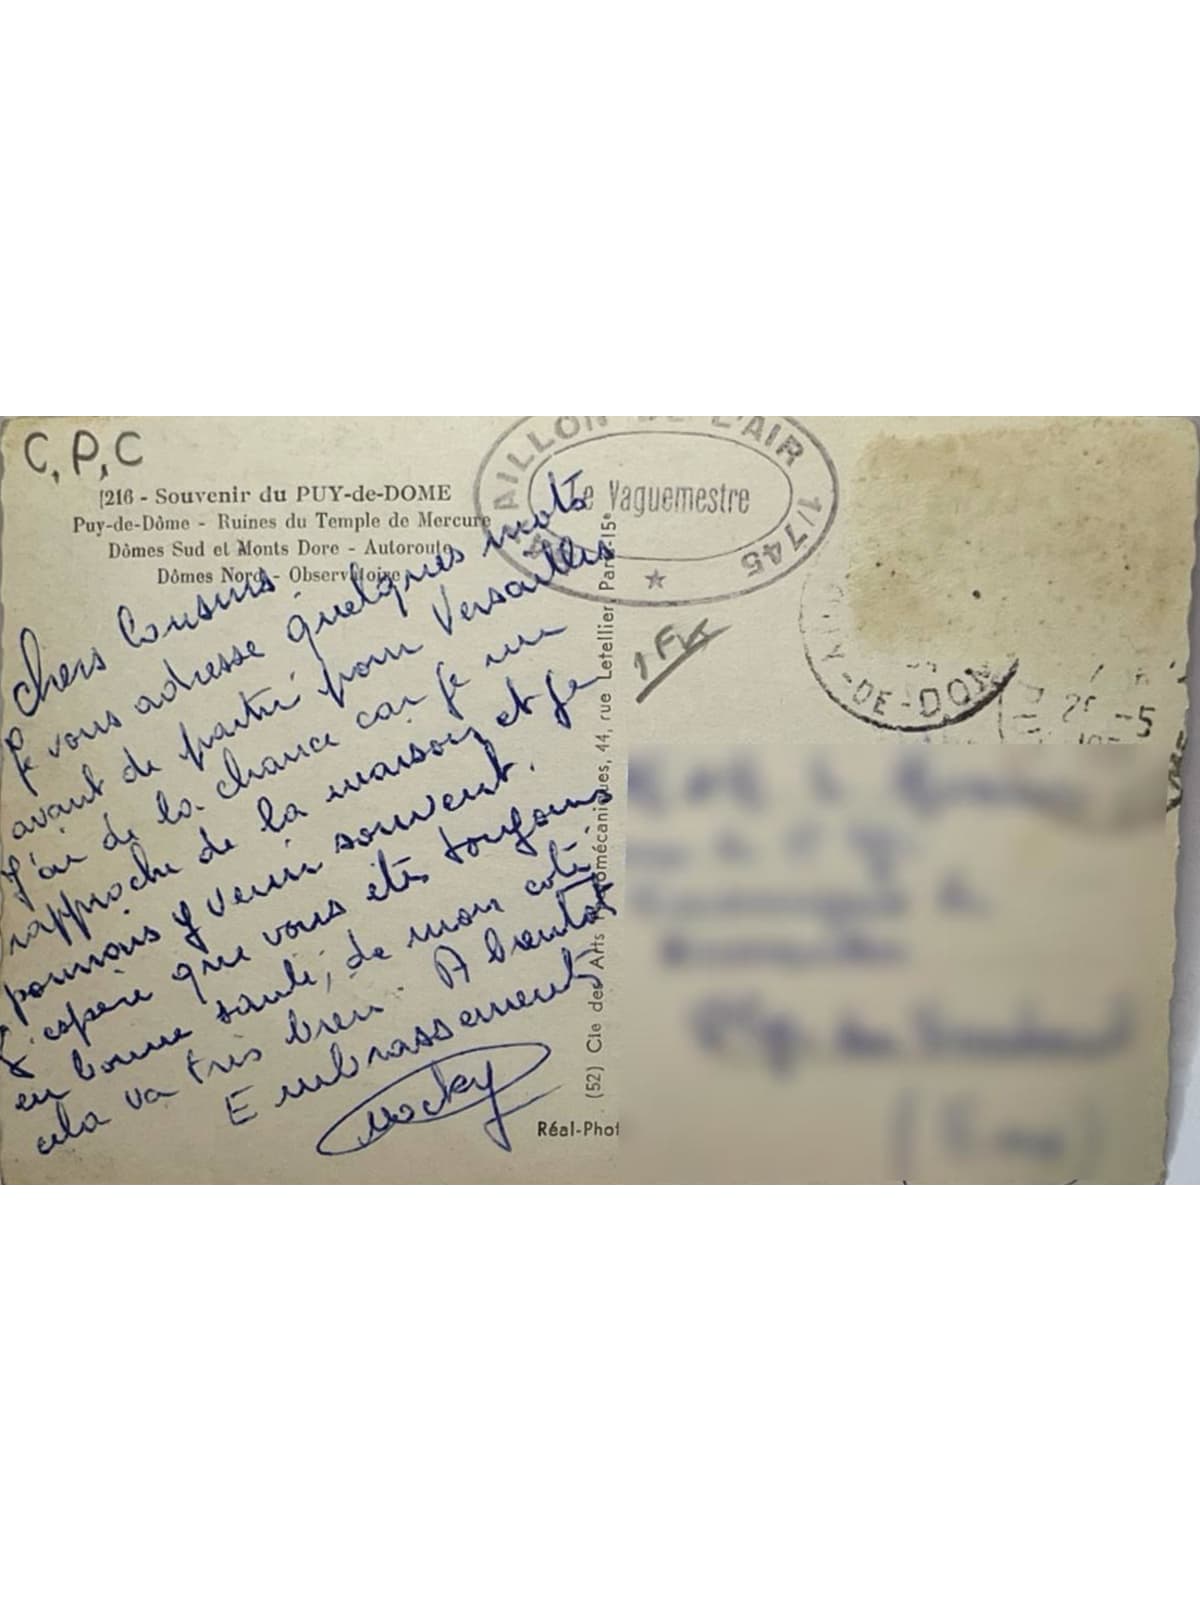 C,P,C
1216 - Souvenir du PUY-de-DOME
Puy-de-Dôme - Ruines du Temple de Mercure
Dômes Sud et Monts Dore - Autoroute
Dômes Nord - Observatoire
Chers Cousins
Je vous adresse quelques mots
avant de partir pour Versailles
J'ai de la chance car je me
rapproche de la maison, et je
pourrais y venir souvent.
J'espère que vous êtes toujours
en bonne santé, de mon coté
cela va très bien. A bientot
Embrassements
Nocky
AILLON DE L'AIR 1/745
Le Vaguemestre
1 Fr
(52) Cie des Arts Photomécaniques, 44, rue Letellier, Paris-15e
Réal-Phot
PUY-DE-DOME
-5